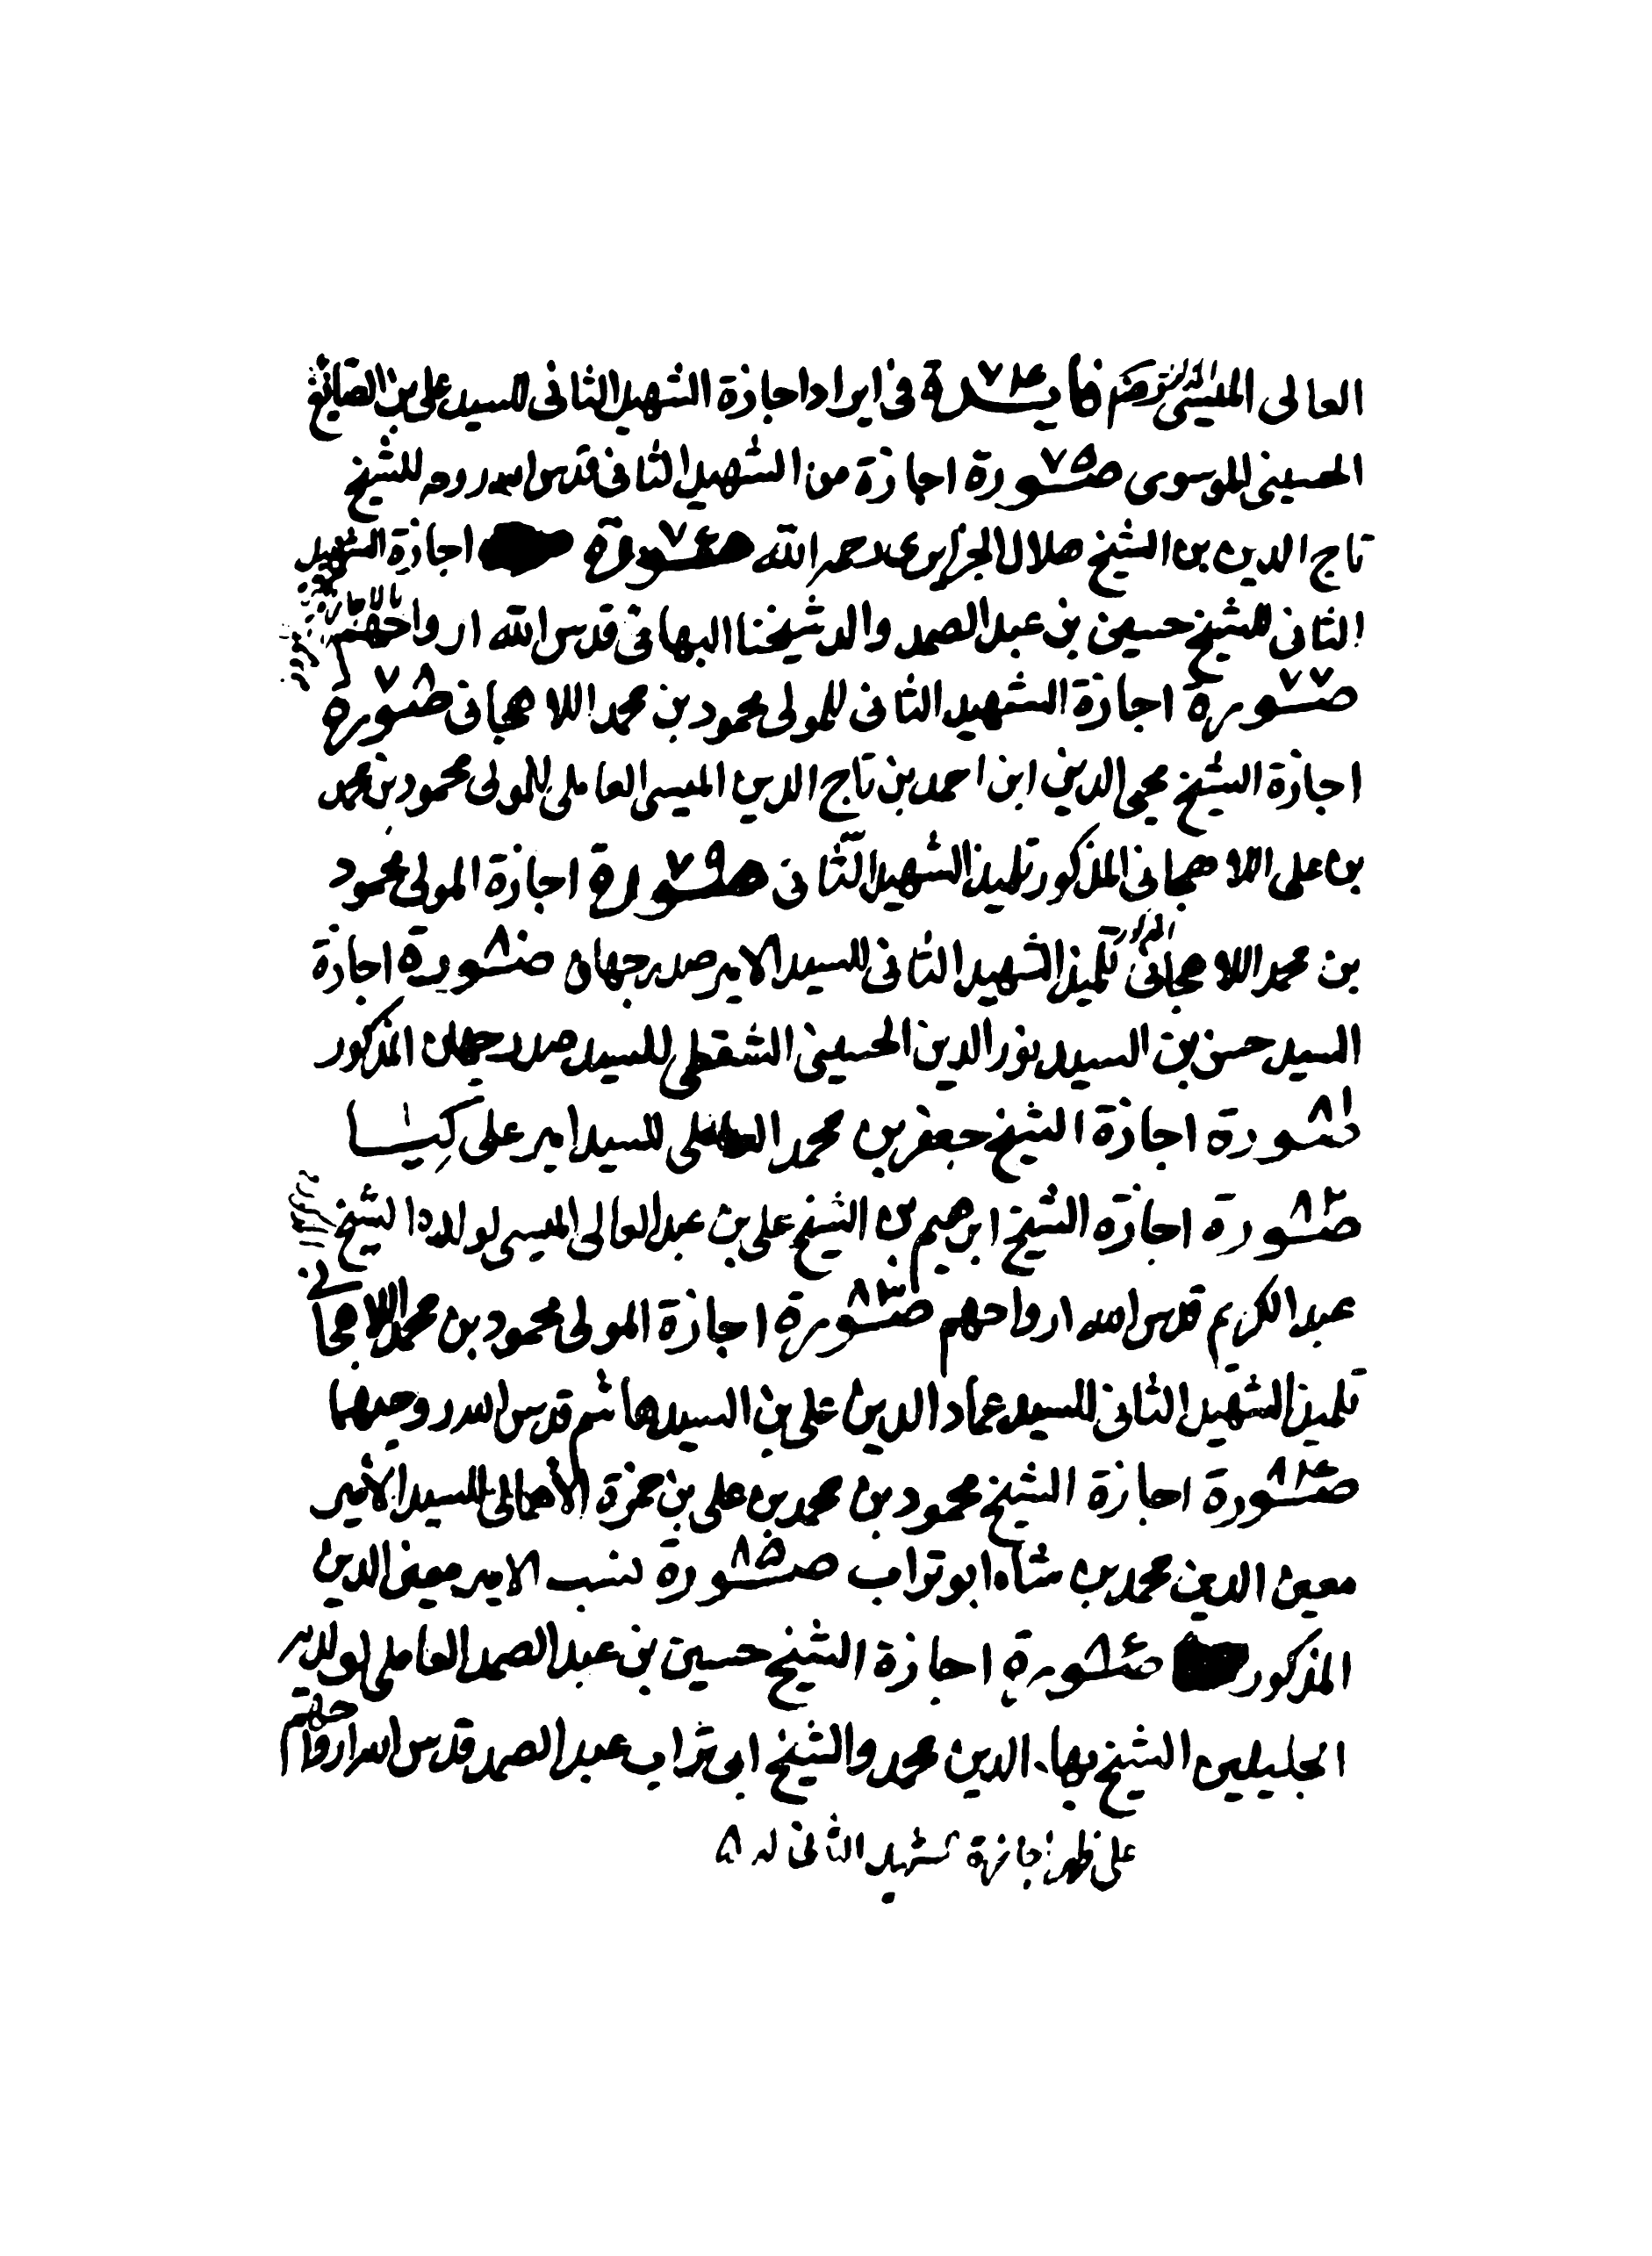 العالى الميسى فايدة ٧٤ فى ايراد اجازة الشهيد الثانى للسيد على بن الصايغ
الحسينى الموسوى صورة ٧٥ اجازة من الشهيد الثانى قدس الله روحه للشيخ
تاج الدين بن الشيخ هلال الجزايرى رحمه الله صورة ٧٦ اجازة الشهيد
الثانى للشيخ حسين بن عبد الصمد والد شيخنا البهائى قدس الله ارواحهم
صورة ٧٧ اجازة الشهيد الثانى للمولى محمود بن محمد اللاهجانى صورة ٧٨
اجازة الشيخ محيى الدين ابن احمد بن تاج الدين الميسى العاملى للمولى محمود بن محمد
بن على اللاهجانى المذكور تلميذ الشهيد الثانى صورة ٧٩ اجازة المولى محمود
بن محمد اللاهجانى المذكور تلميذ الشهيد الثانى للسيد الامير صدر جهان صورة ٨٠ اجازة
السيد حسن بن السيد نور الدين الحسينى الشقطى للسيد صدر جهان المذكور
صورة ٨١ اجازة الشيخ جعفر بن محمد العاملى للسيد امير على كِيٰا
صورة ٨٢ اجازة الشيخ ابرهيم بن الشيخ على بن عبد العالى الميسى لولده الشيخ
عبد الكريم قدس الله ارواحهم صورة ٨٣ اجازة المولى محمود بن محمد اللاهجانى
تلميذ الشهيد الثانى للسيد عماد الدين على بن السيد هاشم قدس الله روحيهما
صورة ٨٤ اجازة الشيخ محمود بن محمد بن على بن حمزة الأهمالى للسيد الأمير
معين الدين محمد بن شاه ابو تراب صورة ٨٥ نسب الامير معين الدين
المذكور صورة ٨٦ اجازة الشيخ حسين بن عبد الصمد العاملى لولديه
الجليلين الشيخ بهاء الدين محمد والشيخ ابى تراب عبد الصمد قدس الله ارواحهم
على ظهر اجازة الشهيد الثانى له